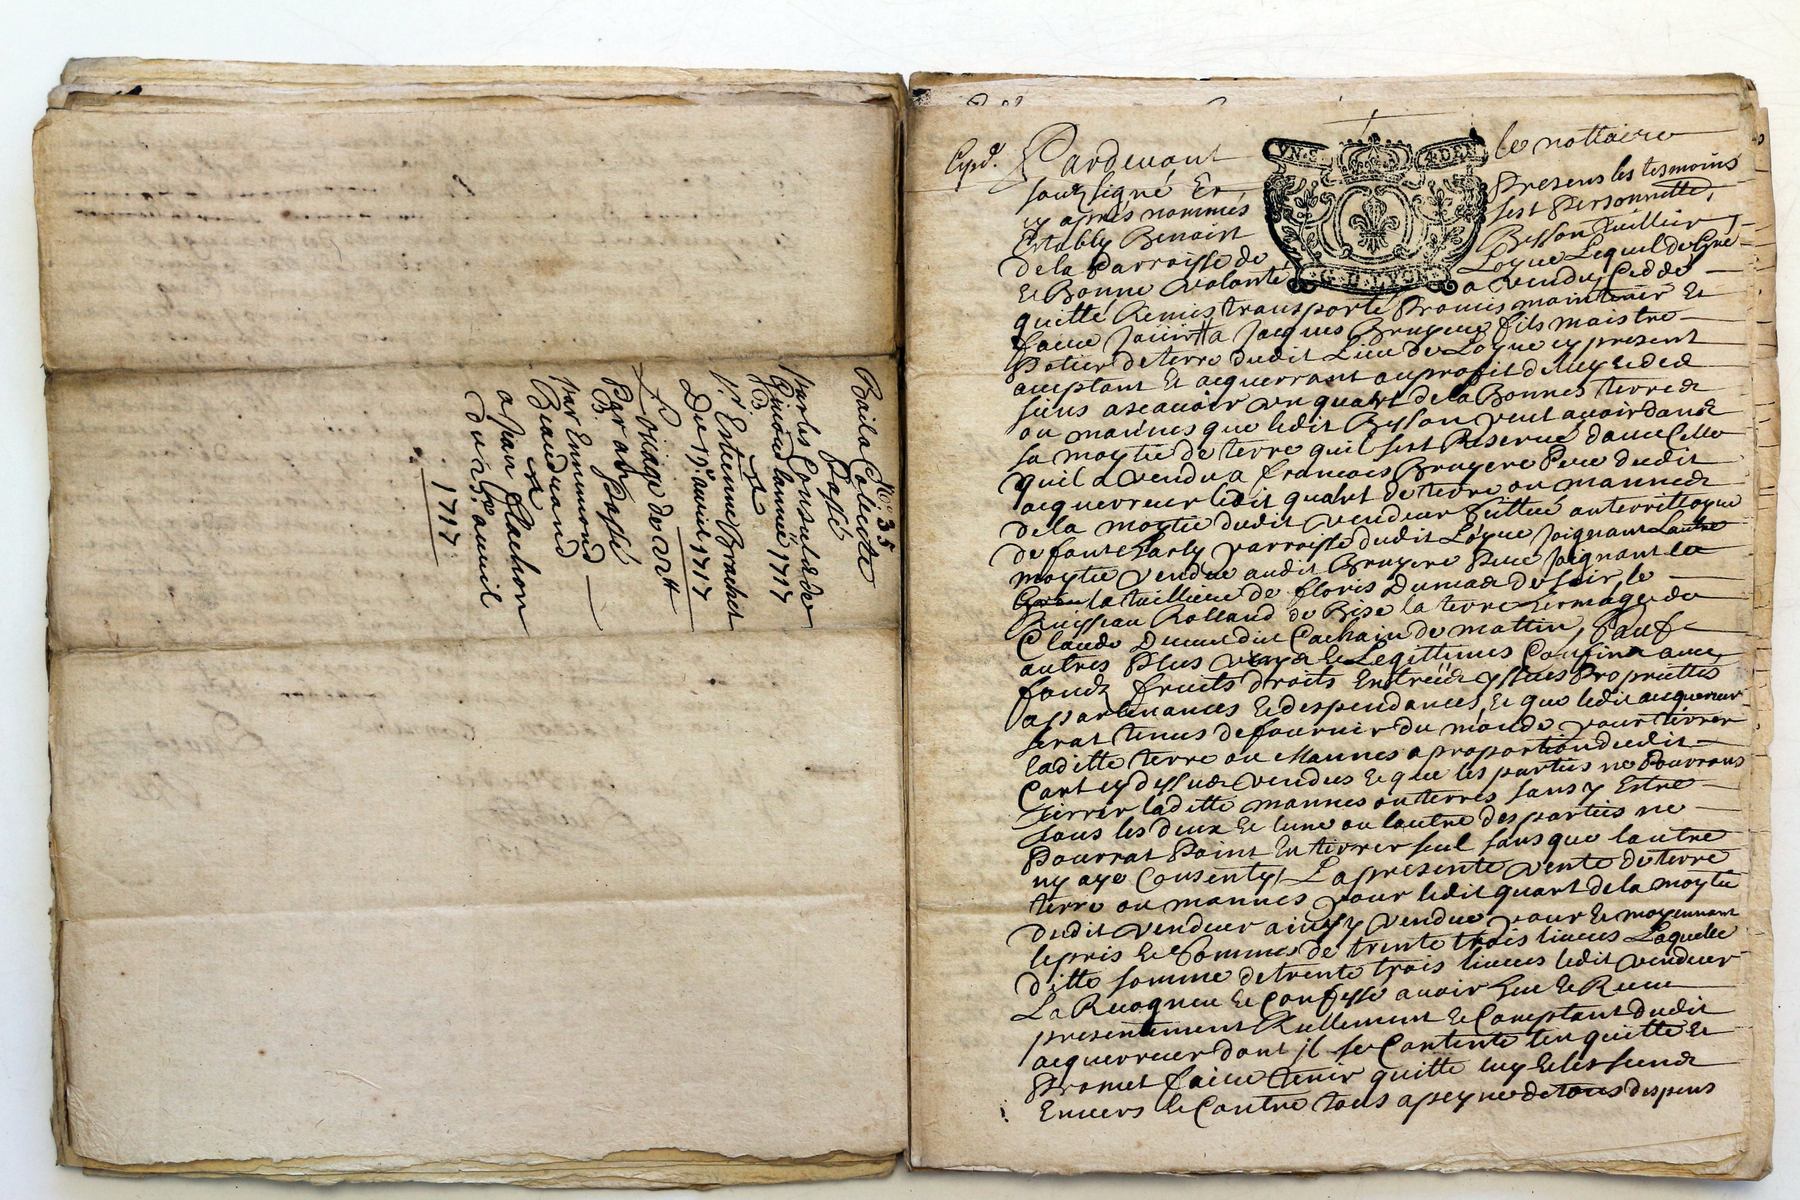 No. 35
Bail a Colecte
Passé
par les Consuls de
l'année 1717
A
Sr. Estienne Brachet
Du 19e. avril 1717
Loüage de 22 tt
Par ab Passé
Par Ennemond
Beauduand
a Jean Flachon
du 25e auvril
1717
Expd.
Pardevant le nottaire
soubsigné Et Presens les tesmoins
cy aprés nommés sest Personnelle,
Estably Benoist Besson Tuillier
de la Parroisse de Loyue Lequel de Gré
Et Bonne volonté a vendu Ceddé
quitte Remis transporté Promis maintenir Et
faire Jouir a Jacques Bruyere fils maistre
Potier de terre dudit Lieu de Loyue cy present
aceptant Et acquerrant au profit de luy Et des
siens ascavoir un quart de la Bonnes terres
ou mannes que ledit Besson veut avoir dans
sa moytié de terre quil sest Reservé dans Celle
quil a vendu a francois Bruyere Pere dudit
acquerreur ledit quart de terre ou mannes
de la moytié dudit vendeur scittué au territtoyre
de font Charly parroisse dudit Loyue Joignant Lautre
moytié vendue audit Bruyere Pere Joignant la
la tuilliere de floris Dumas de soir, le
Ruisseau Rolland de Bise la terre hermage de
Claude Ducut dit Cachain de mattin, sauf
autres Plus vrays Et Legittimes Confins avec
fondz fruits droits Entrées yssues Proprietés
appartenances Et despendances, Et que ledit acquereur
serat tenus de fournir du monde pour tirrer
laditte terre ou Mannes a proportion dudit
Cart cy dessus vendus Et que les parties ne Pourrons
tirrer laditte mannes ou terres sans y Estre
tous les deux Et lune ou lautre des parties ne
Pourrat Point En tirrer seul sans que lautre
ny aye Consenty, La presente vente de terre
terre ou mannes pour ledit quart de la moytié
dudit vendeur ainsy vendue pour Et moyennant
le pris Et Somme de trente trois livres Laquelle
ditte somme de trente trois livres ledit vendeur
La Recogneu Et Confessé avoir Eue Et Receu
presentement Reellement Et Comptant dudit
acquerreur dont jl se Contente len quitte Et
Promet faire tenir quitte luy Et les siens
Envers Et Contre tous a peyne de tous despens